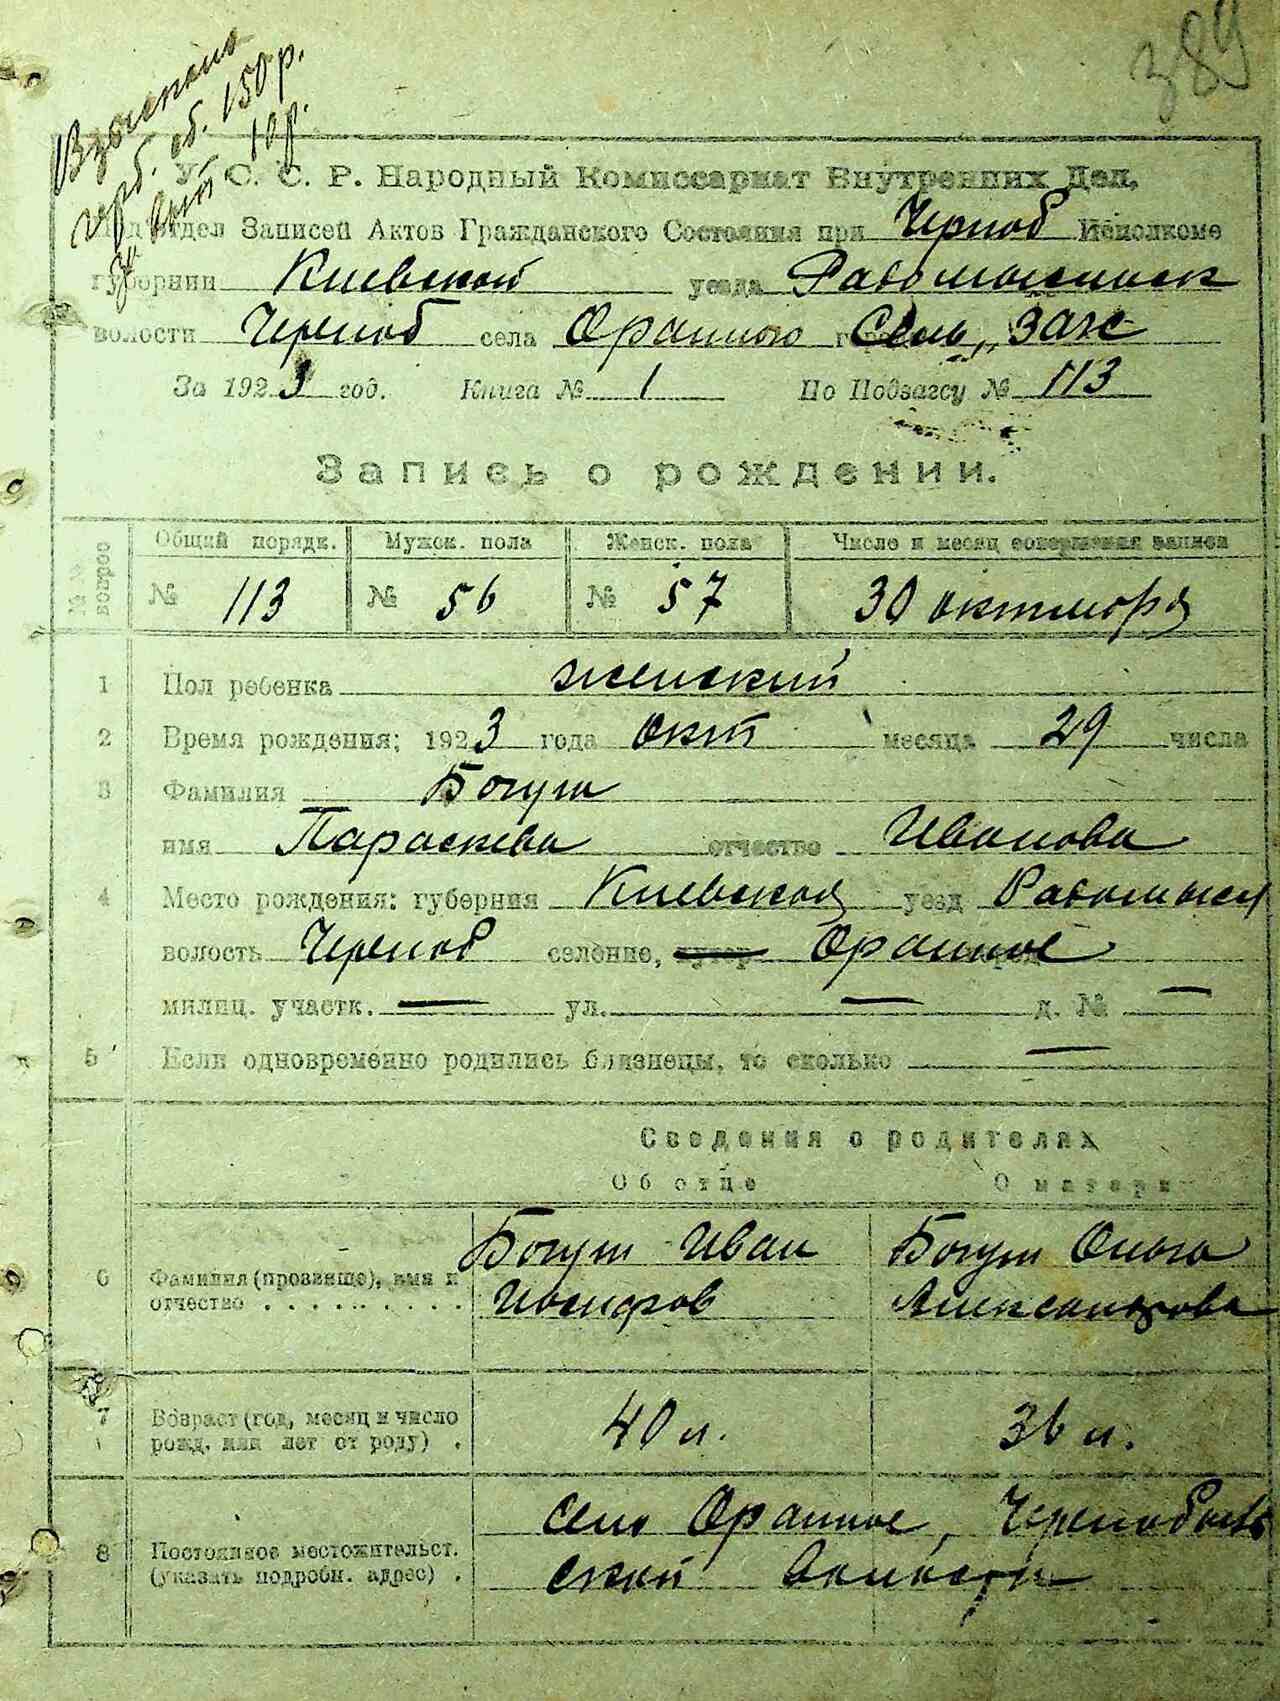 389
Взыскано
герб. сб. 150 р.
за бланк 10 р.
У. С. С. Р. Народный Комиссариат Внутренних Дел,
Подотдел Записей Актов Гражданского Состояния при Черноб Исполкоме
губернии Киевской уезда Радомысльск
волости Черноб села Оранного Сель „Загс
За 1923 год. Книга № 1 По Подзагсу № 113
Запись о рождении.
№№ вопрос Общий порядк. Мужск. пола Женск. пола Число и месяц совершения записи
№ 113 № 56 № 57 30 октября
1 Пол ребенка женский
2 Время рождения; 1923 года Окт месяца 29 числа
3 Фамилия Богуш
имя Параскева отчество Иванова
4 Место рождения: губерния Киевская уезд Радомысл
волость Черноб селение, хутор Оранное
милиц. участк. — ул. — д. № —
5 Если одновременно родились близнецы, то сколько —
Сведения о родителях
Об отце О матери
6 Фамилия (прозвище), имя и отчество . . . . . . . . .
Богуш Иван
Иосифов
Богуш Ольга
Александрова
7 Возраст (год, месяц и число рожд. или лет от роду) .
40 л. 36 л.
8 Постоянное местожительст. (указать подробн. адрес) .
село Оранное, Чернобыль
ской волости